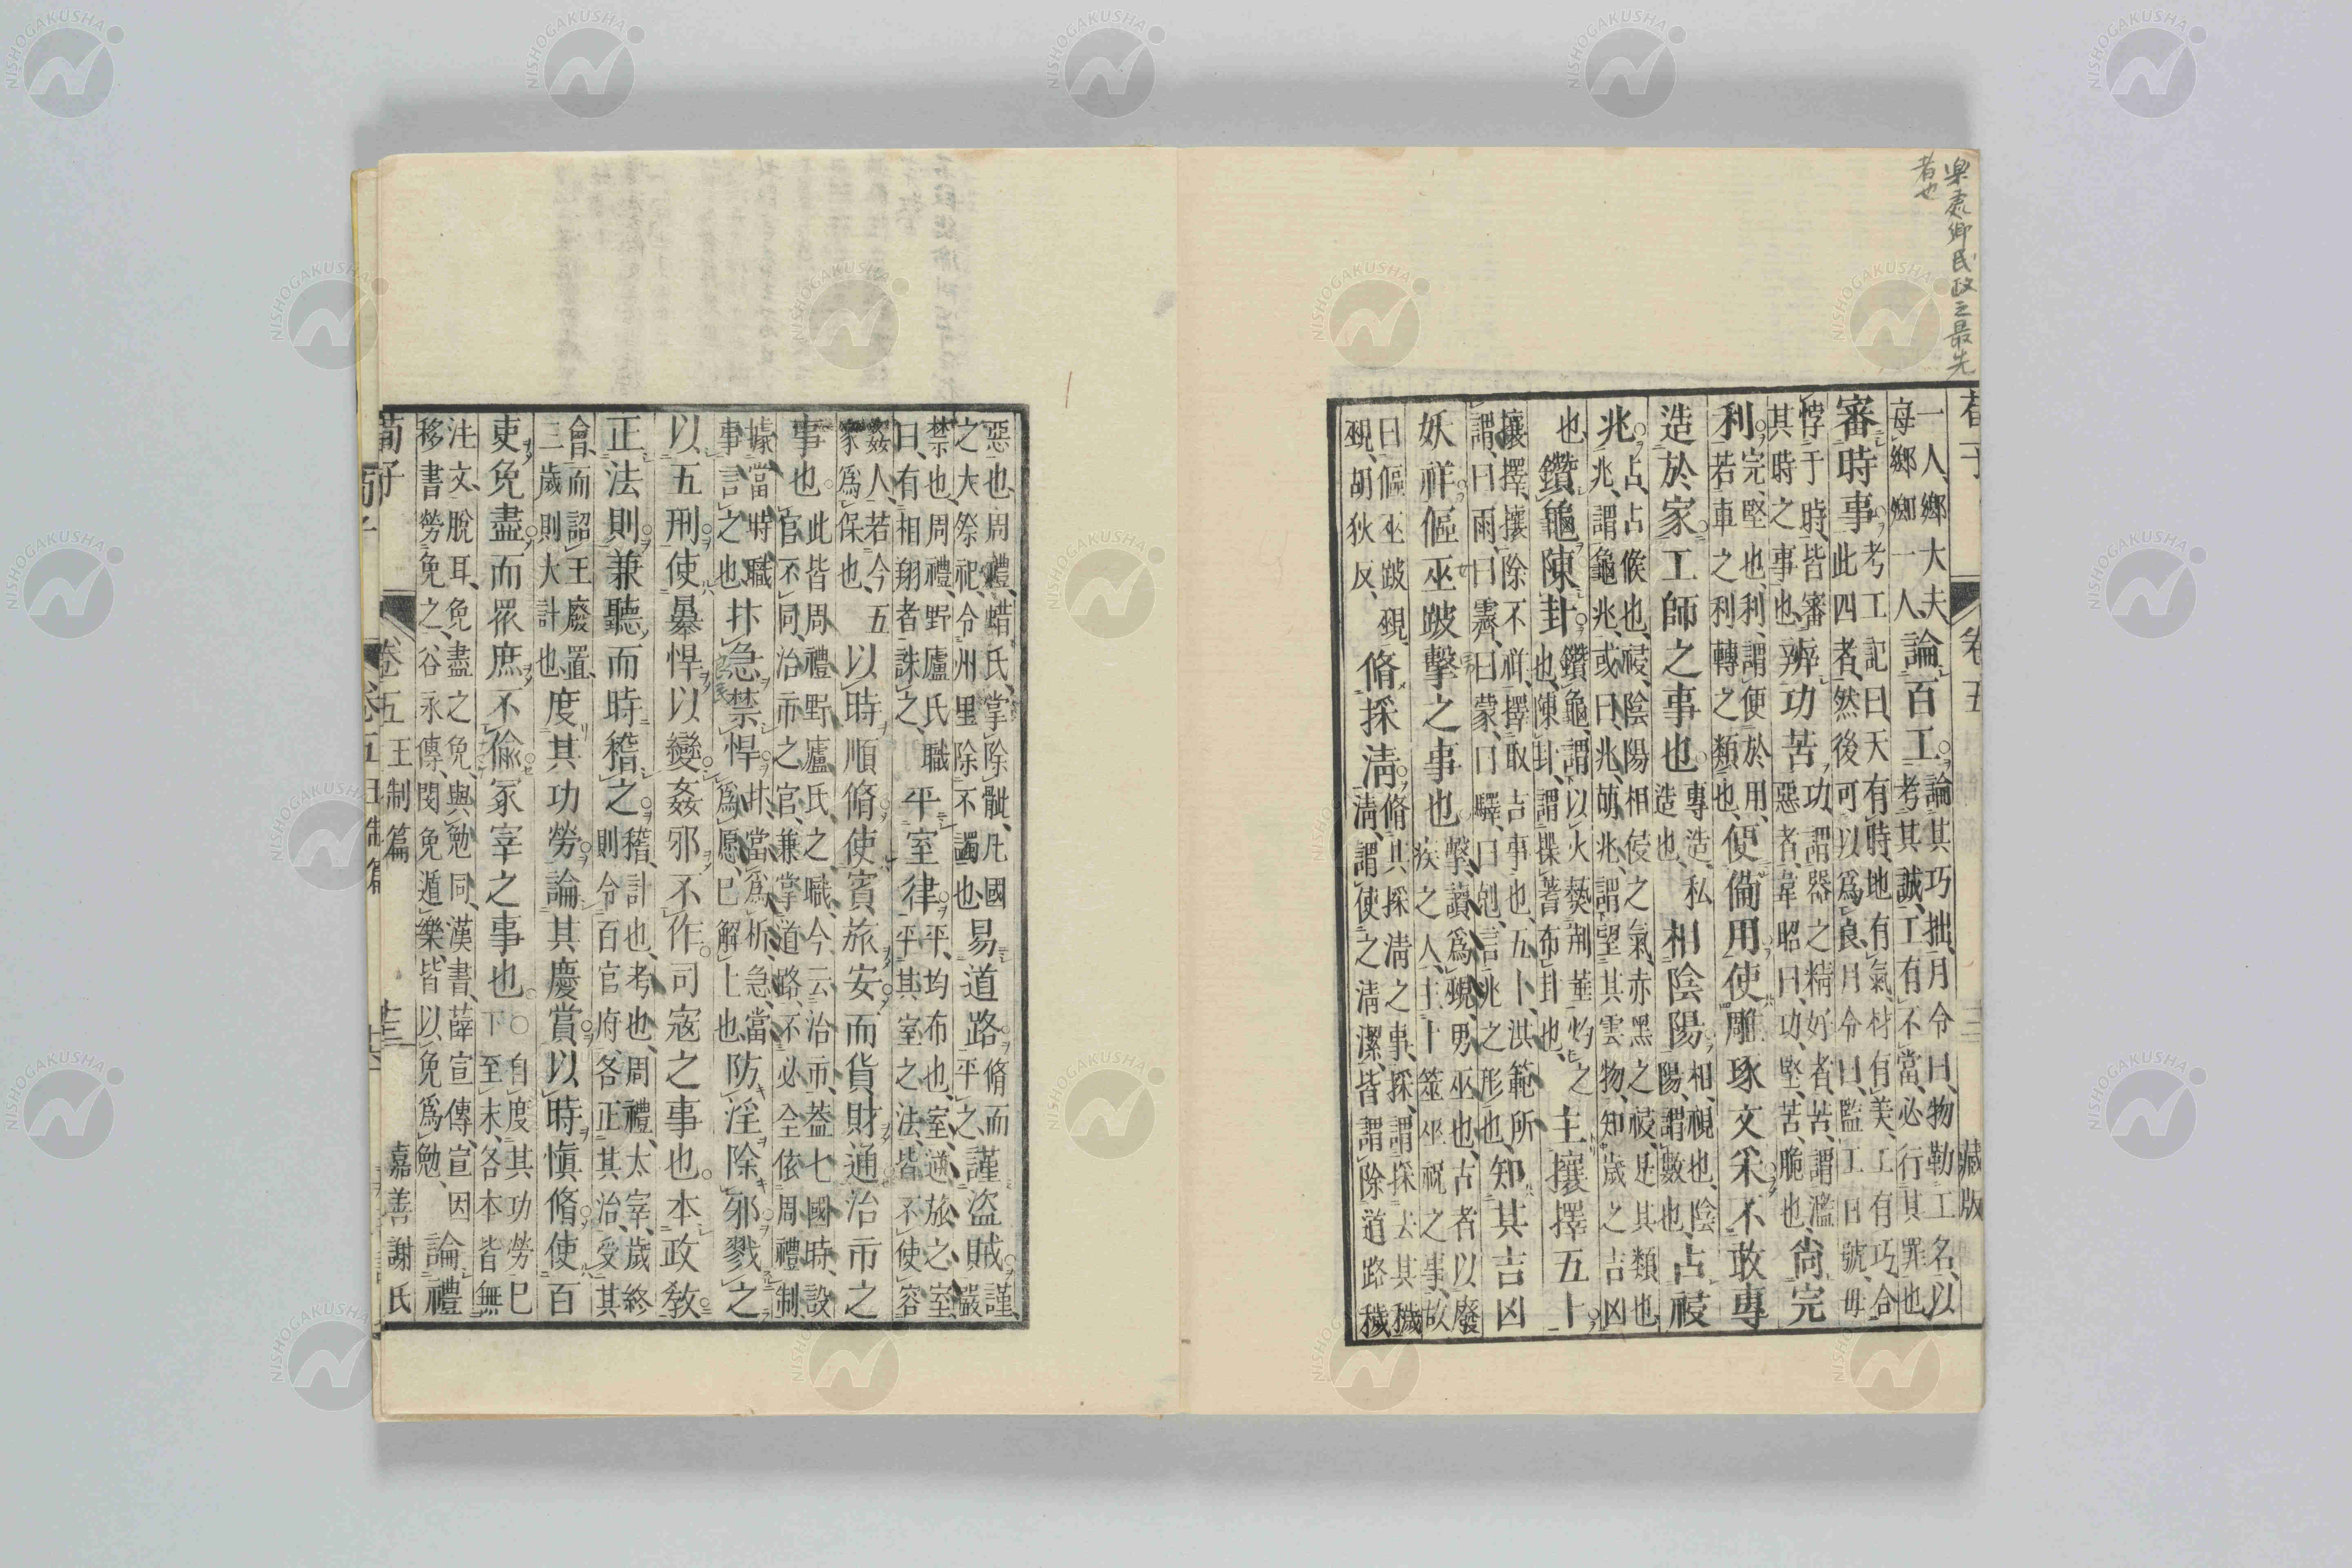 樂處鄉民政之最先
者也
卷五 藏版
一人、鄉大夫
每鄉卿一人、
論百工
論其巧拙、月令曰、物勒工名、以
考其誠、工有不當、必行其罪也
審時事
考工記曰、天有時、地有氣、材有美、工有巧、合
此四者、然後可以爲良、月令曰、監工日號、毋
悖于時、皆審
其時之事也、
辨功苦
功、謂器之精好者、苦、謂濫
惡者、韋昭曰、功、堅、苦、脆也、
尚完
利
完、堅也、利、謂便於用、
若車之利轉之類也、
便備用使雕琢文采不敢專
造於家工師之事也
專造、私
造也、
相陰陽
相、視也、陰
陽、謂數也、
占祲
兆
占、占候也、祲、陰陽相侵之氣、赤黑之祲、是其類也、
兆、謂龜兆、或曰、兆、萌兆、謂望其雲物、知歲之吉凶
也、
鑽龜陳卦
鑽龜、謂以火爇荆菙灼之
也、陳卦、謂揲蓍布卦也、
主攘擇五卜
攘擇、攘除不祥、擇取吉事也、五卜、洪範所
謂、曰雨、曰霽、曰蒙、曰驛、曰剋、言兆之形也、
知其吉凶
妖祥傴巫跛擊之事也
擊、讀爲覡、男巫也、古者以廢
疾之人、主卜筮巫祝之事、故
曰傴巫跛覡、
覡、胡狄反、
脩採清
脩其採清之事、採、謂採去其穢
清、謂使之清潔、皆謂除道路穢
惡也、周禮、蜡氏、掌除骴、凡國
之大祭祀、令州里除不蠲也、
易道路
脩而
平之、
謹盜賊
謹、
嚴
禁也、周禮、野廬氏職
曰、有相翔者誅之、
平室律
平、均布也、室、逆旅之室、
平其室之法、皆不使容
姦人、若今五
家爲保也、
以時順脩使賓旅安而貨財通治市之
事也
此皆周禮野廬氏之職、今云治市、蓋七國時、設
官不同、治市之官、兼掌道路、不必全依周禮制、
據當時職
事言之也
抃急禁悍
抃、當爲析、急、當
爲愿、已解上也
防淫除邪戮之
以五刑使暴悍以變姦邪不作司寇之事也本政敎
正法則兼聽而時稽之
稽、計也、考也、周禮、太宰、歲終
則令百官府、各正其治、受其
會、而詔王廢置、
三歲則大計也、
度其功勞論其慶賞以時愼脩使百
吏免盡而衆庶不偷冢宰之事也
○自度其功勞已
下至末、各本皆無
注文、脫耳、免盡之免、與勉同、漢書薛宣傳、宣因
移書勞免之、谷永傳、閔免遁樂、皆以免爲勉、
論禮
荀子 卷五 王制篇 嘉善謝氏